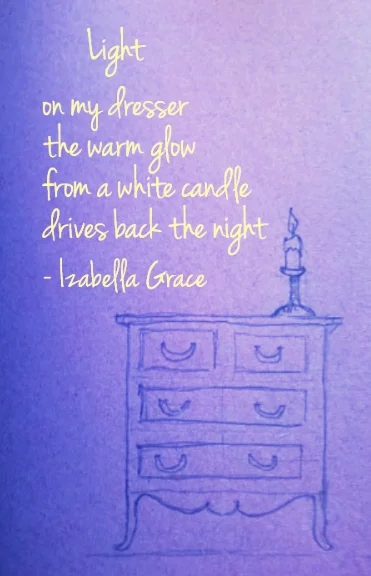 Light
on my dresser
the warm glow
from a white candle
drives back the night
- Izabella Grace